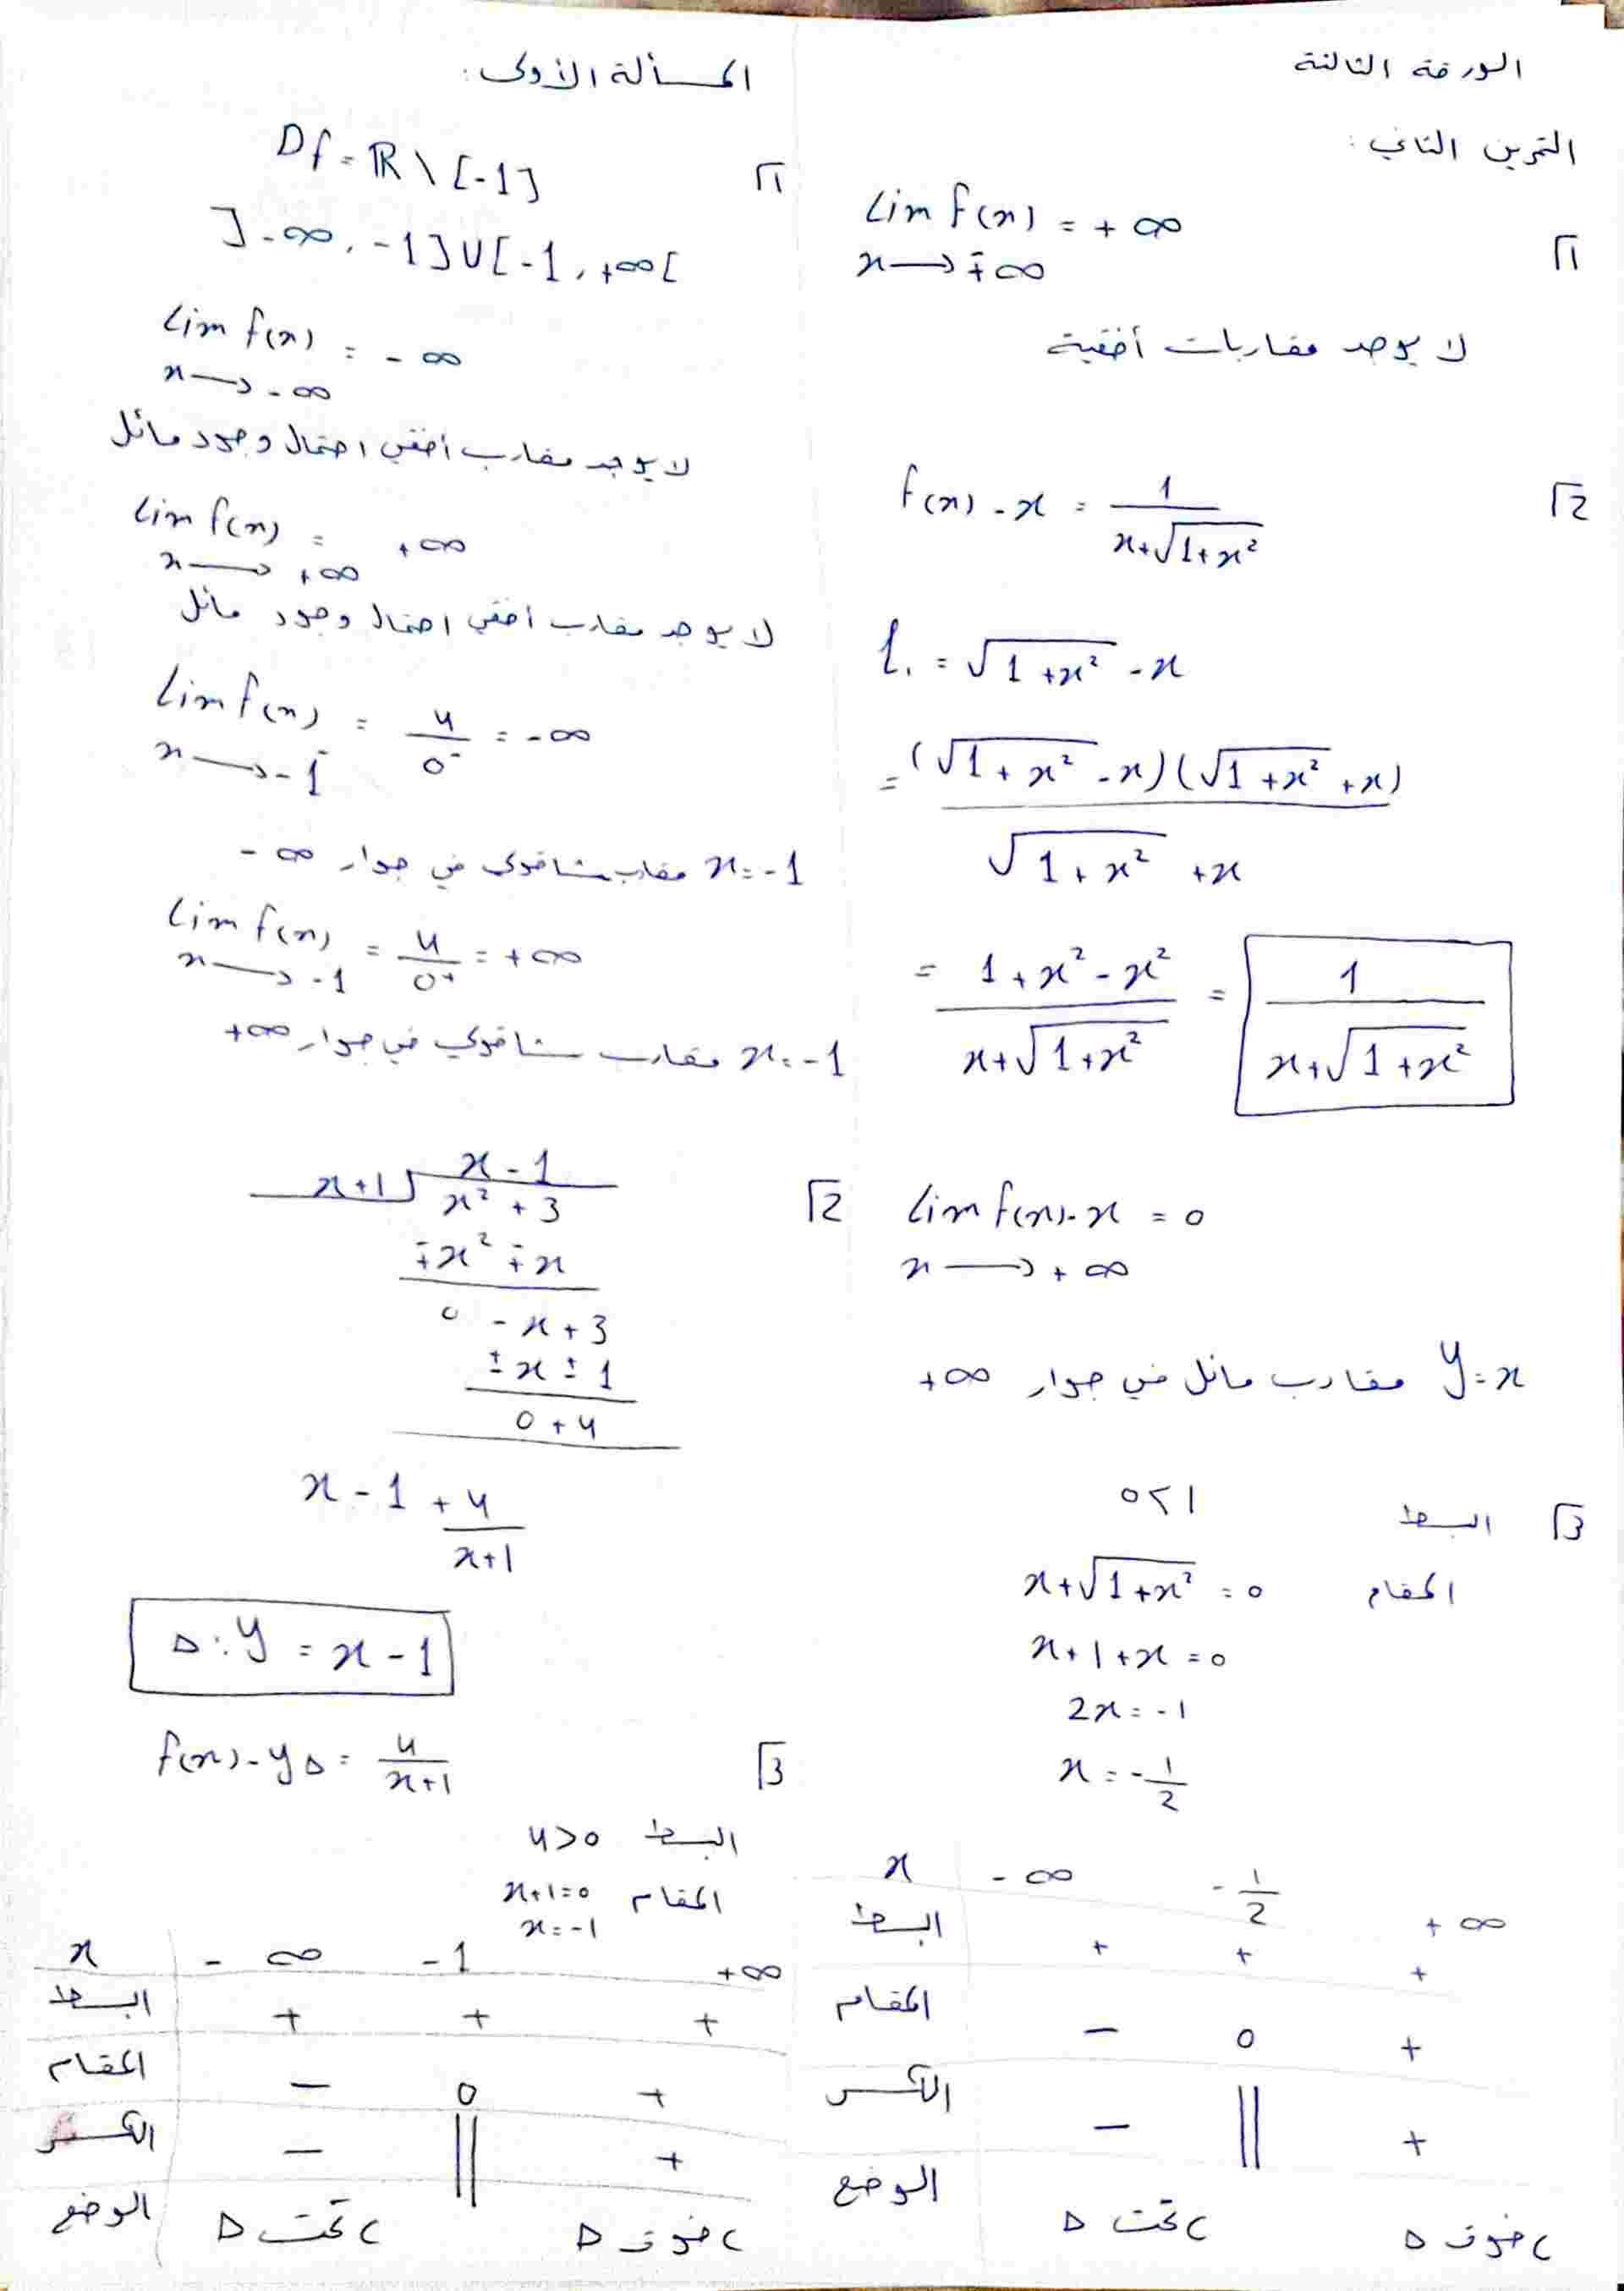 الورقة الثالثة
التمرين الثاني :
√1
lim f(x) = + ∞
x → ∓∞
لا يوجد مقاربات أفقية
√2
f(x) - x = 1/(x+√(1+x²))
l₁ = √(1+x²) - x
= (√(1+x²) - x)(√(1+x²) + x) / (√(1+x²) + x)
= (1+x²-x²)/(x+√(1+x²)) = 1/(x+√(1+x²))
lim f(x)-x = 0
x → +∞
y=x مقارب مائل في جوار +∞
√3 البسط 1>0
المقام x+√(1+x²) = 0
x+1+x=0
2x=-1
x = -1/2
x -∞ -1/2 +∞
البسط + + +
المقام - 0 +
الكسر - || +
الوضع C تحت Δ C فوق Δ
المسألة الأولى :
√1
Df = ℝ \ [-1]
]-∞, -1]∪[-1, +∞[
lim f(x) = - ∞
x → -∞
لا يوجد مقارب أفقي احتمال وجود مائل
lim f(x) = +∞
x → +∞
لا يوجد مقارب أفقي احتمال وجود مائل
lim f(x) = 4/0⁻ = -∞
x → -1⁻
x=-1 مقارب شاقولي في جوار -∞
lim f(x) = 4/0⁺ = +∞
x → -1
x=-1 مقارب شاقولي في جوار +∞
√2
x - 1
x+1 √ x² + 3
∓x² ∓x
0 - x + 3
± x ± 1
0 + 4
x - 1 + 4/(x+1)
Δ: y = x - 1
√3
f(x) - yΔ = 4/(x+1)
البسط 4>0
المقام x+1=0
x=-1
x -∞ -1 +∞
البسط + + +
المقام - 0 +
الكسر - || +
الوضع C تحت Δ C فوق Δ